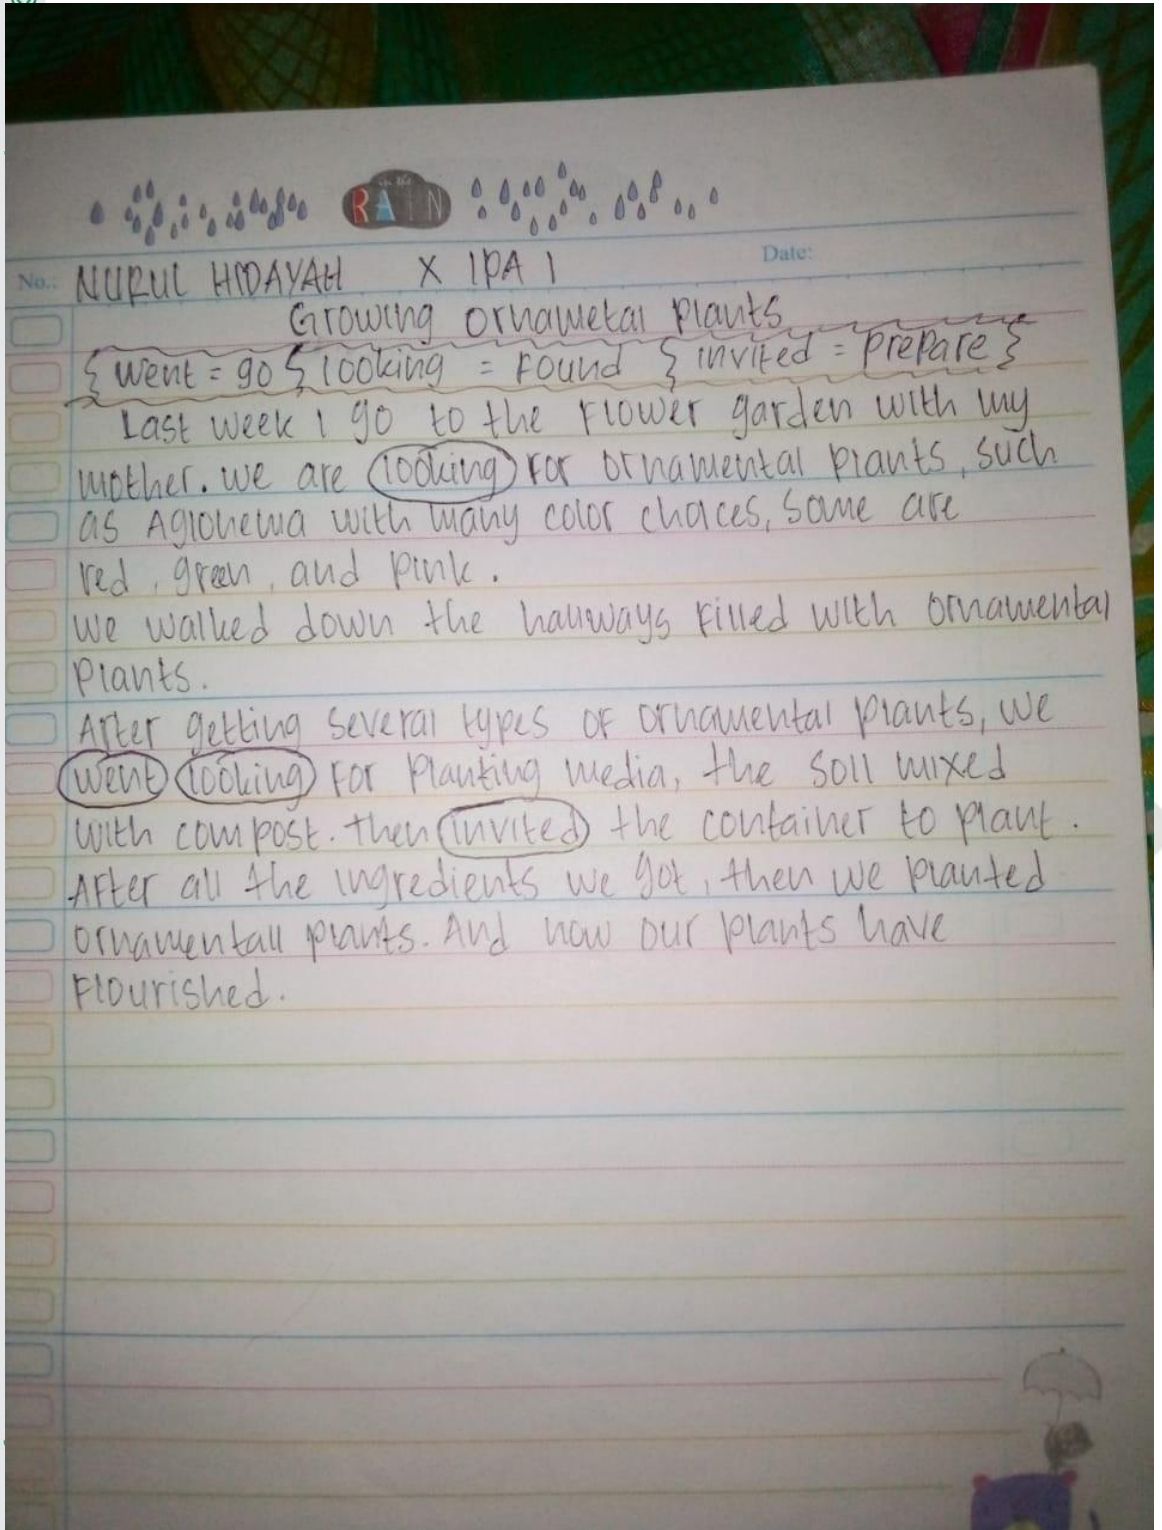 in the
RAIN
No.: NURUL HIDAYAH X IPA 1 Date:
Growing ornametal plants
{ went = go { looking = found { invited = prepare }
Last week I go to the flower garden with my
mother. we are looking for ornamental plants, such
as Aglonema with many color choces, some are
red, green, and pink.
we walked down the hallways filled with ornamental
plants.
After getting several types of ornamental plants, we
went looking for planting media, the soil mixed
with compost. then invited the container to plant.
After all the ingredients we got, then we planted
ornamentall plants. And now our plants have
flourished.